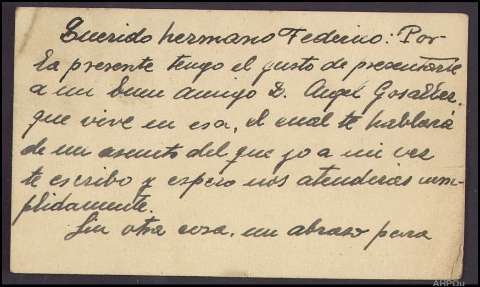 Querido hermano Federico: Por
la presente tengo el gusto de presentarte
a un buen amigo D. Angel Gosalbez,
que vive en esa, el cual te hablará
de un asunto del que yo a mi vez
te escribo y espero nos atenderás cum-
plidamente.
Sin otra cosa, un abrazo para
AHPOu